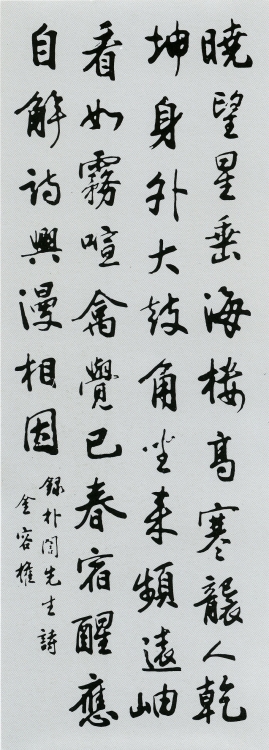 曉望星垂海樓高寒襲人乾
坤身外大鼓角坐來頻遠岫
看如霧喧禽覺已春宿醒應
自解詩興漫相因
錄朴誾先生詩
金容